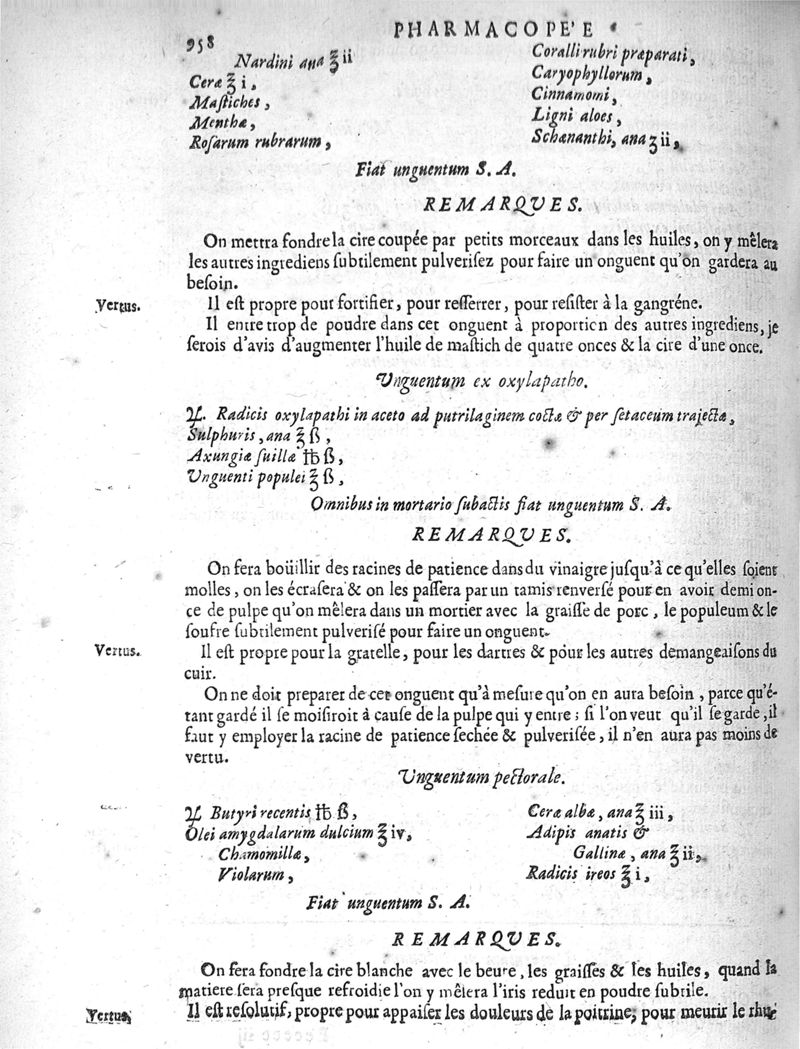 958
PHARMACOPE'E
Nardini ana ℥ ii
Ceræ ℥ i,
Maſtiches,
Menthæ,
Roſarum rubrarum,
Coralli rubri præparati,
Caryophyllorum,
Cinnamomi,
Ligni aloes,
Schœnanthi, ana ʒ ii,
Fiat unguentum S. A.
REMARQUES.
On mettra fondre la cire coupée par petits morceaux dans les huiles, on y mêlera
les autres ingrediens ſubtilement pulveriſez pour faire un onguent qu'on gardera au
beſoin.
Vertus.
Il eſt propre pour fortifier, pour reſſerrer, pour reſiſter à la gangréne.
Il entre trop de poudre dans cet onguent à proportion des autres ingrediens, je
ſerois d'avis d'augmenter l'huile de maſtich de quatre onces & la cire d'une once.
Unguentum ex oxylapatho.
♃. Radicis oxylapathi in aceto ad putrilaginem coctæ & per ſetaceum trajectæ,
Sulphuris, ana ℥ ß,
Axungiæ ſuillæ ℔ ß,
Unguenti populei ℥ ß,
Omnibus in mortario ſubactis fiat unguentum S. A.
REMARQUES.
On fera boüillir des racines de patience dans du vinaigre juſqu'à ce qu'elles ſoient
molles, on les écraſera & on les paſſera par un tamis renverſé pour en avoir demi on-
ce de pulpe qu'on mêlera dans un mortier avec la graiſſe de porc, le populeum & le
ſoufre ſubtilement pulveriſé pour faire un onguent.
Vertus.
Il eſt propre pour la gratelle, pour les dartres & pour les autres demangeaiſons du
cuir.
On ne doit preparer de cet onguent qu'à meſure qu'on en aura beſoin, parce qu'é-
tant gardé il ſe moiſiroit à cauſe de la pulpe qui y entre; ſi l'on veut qu'il ſe garde, il
faut y employer la racine de patience ſechée & pulveriſée, il n'en aura pas moins de
vertu.
Unguentum pectorale.
♃ Butyri recentis ℔ ß,
Olei amygdalarum dulcium ℥ iv,
Chamomillæ,
Violarum,
Ceræ albæ, ana ℥ iii,
Adipis anatis &
Gallinæ, ana ℥ ii,
Radicis ireos ℥ i,
Fiat unguentum S. A.
REMARQUES.
On fera fondre la cire blanche avec le beure, les graiſſes & les huiles, quand la
matiere ſera presque refroidie l'on y mêlera l'iris reduit en poudre ſubtile.
Vertus,
Il eſt reſolutif, propre pour appaiſer les douleurs de la poitrine, pour meurir le rhu-